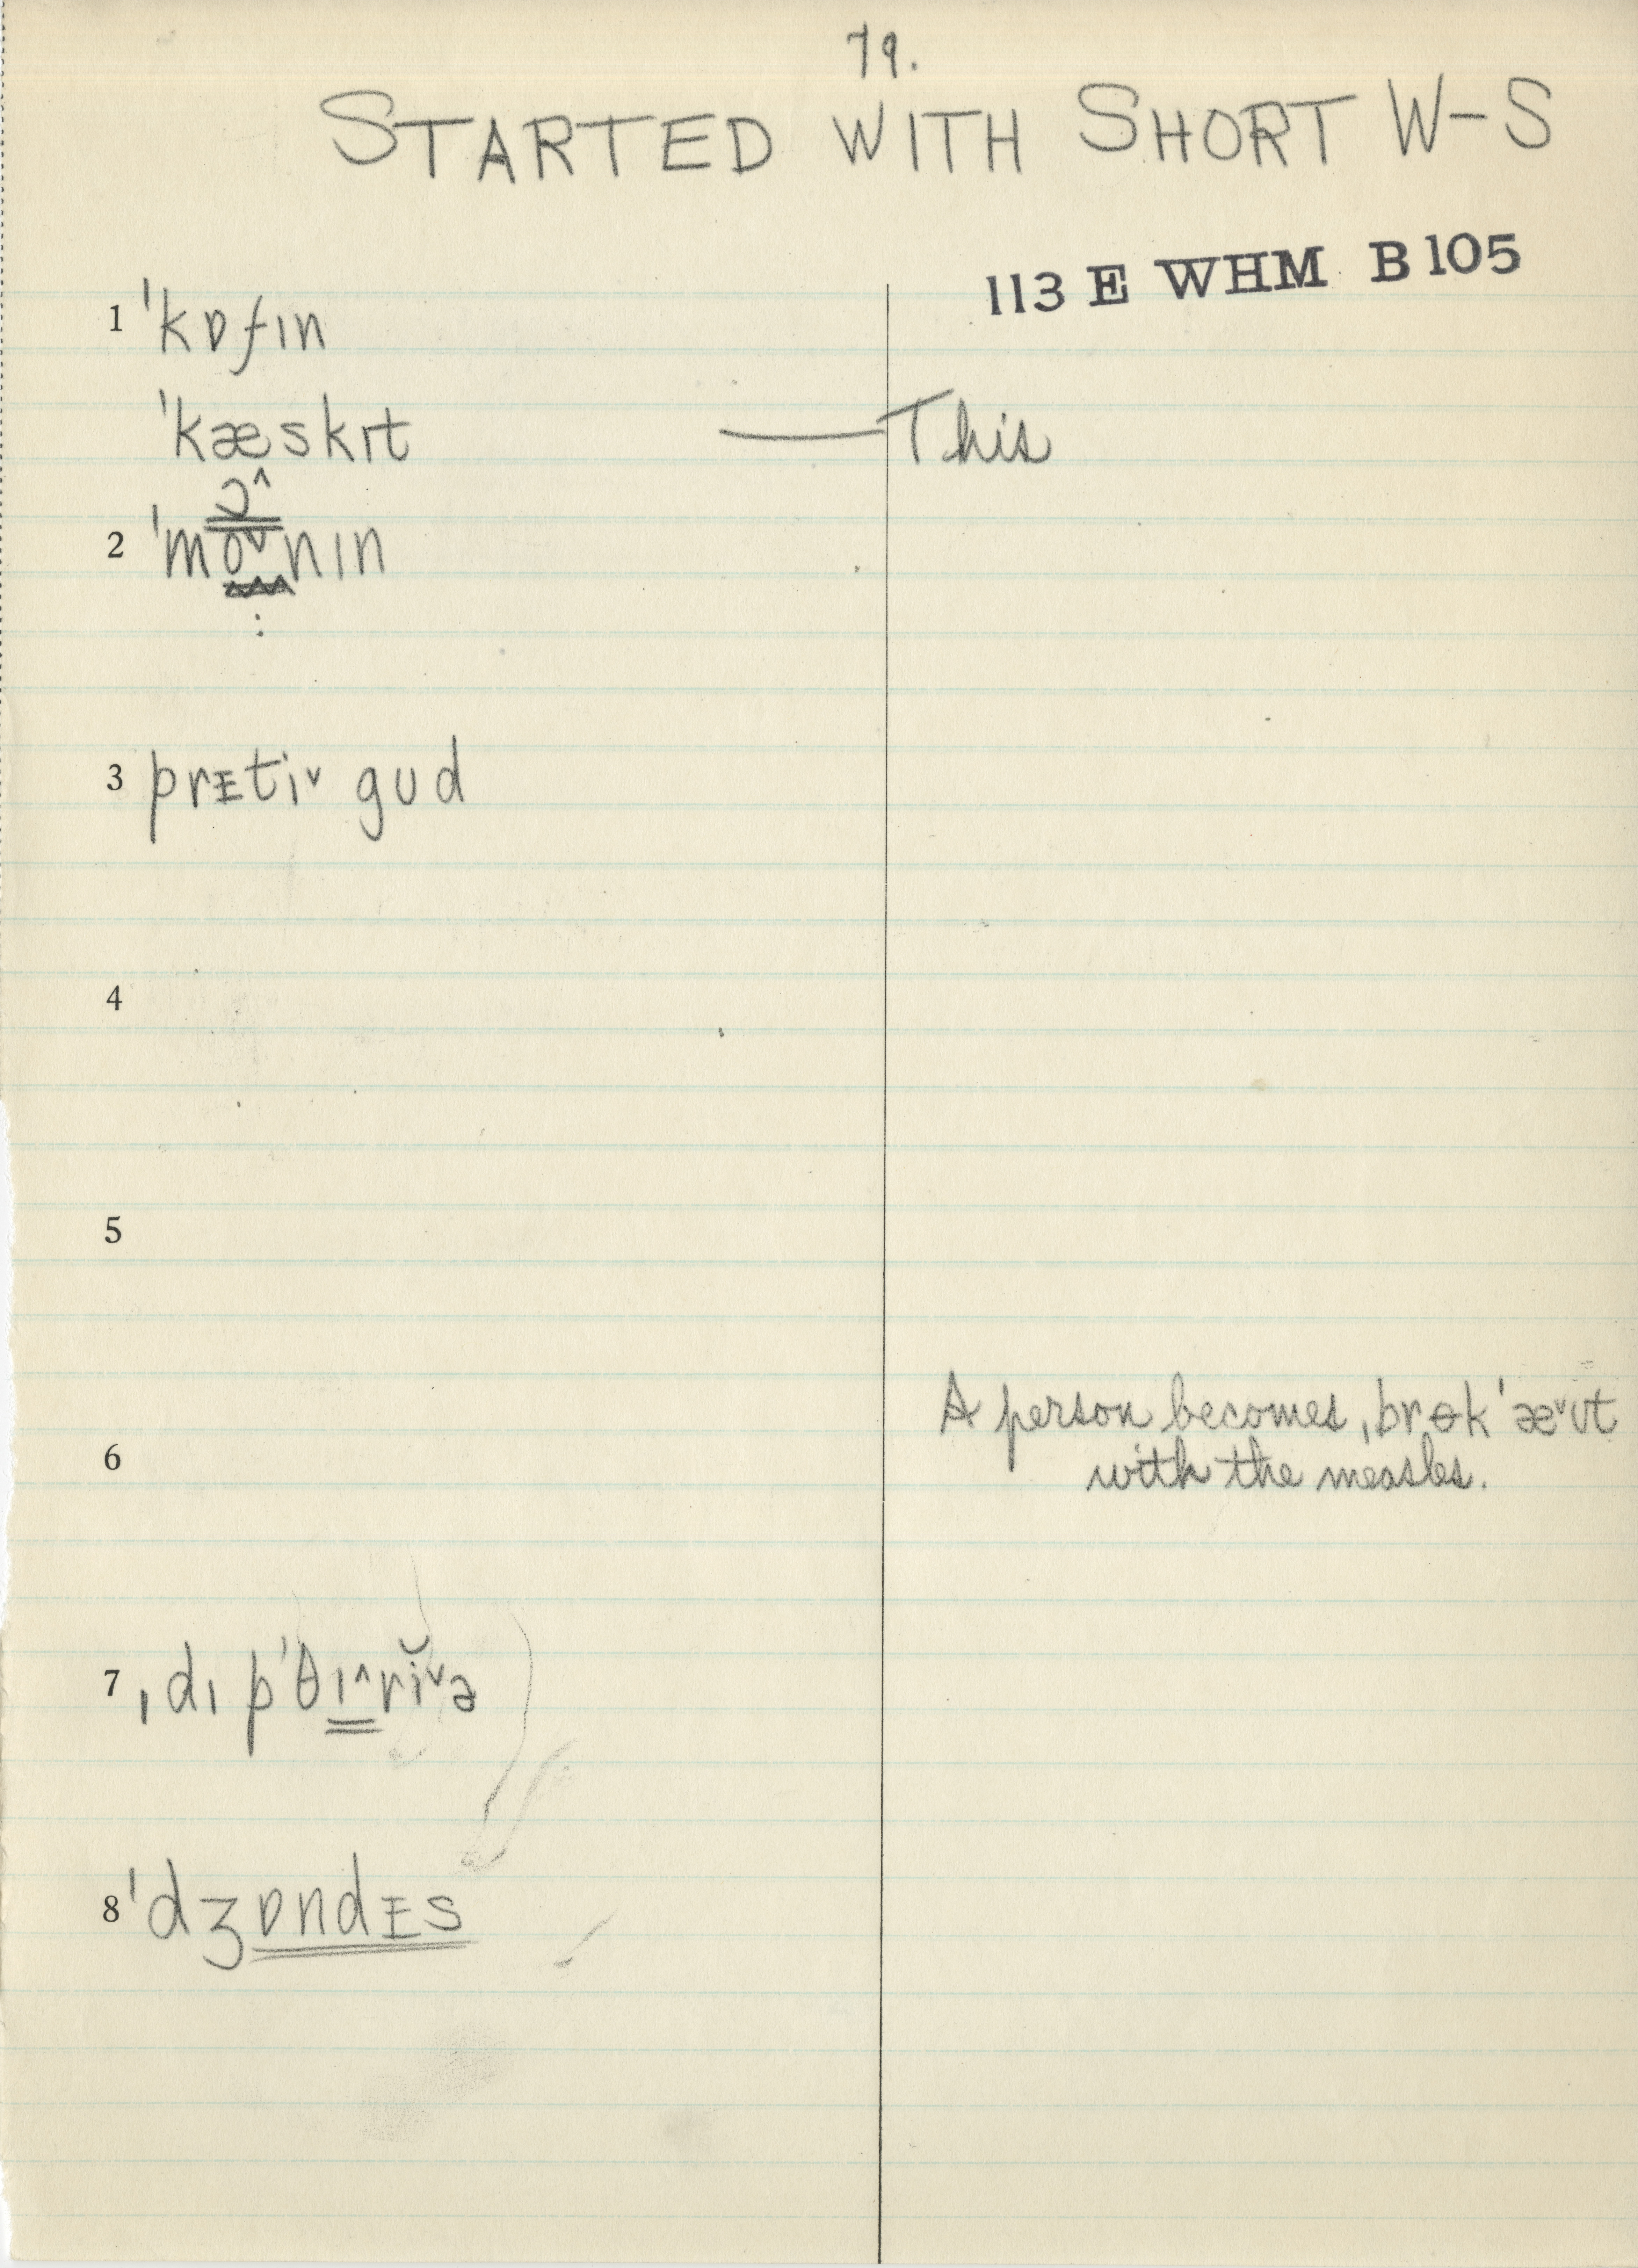 79.
STARTED WITH SHORT W-S
113 E WHM B 105
1 ˈkɒfɪn
ˈkæskɪt — This
ɔ˄
2 ˈmo˅nɪn
:
3 prᴇti˅ gud
4
5
A person becomes ˌbrɵkˈæ˅ʊt
6
with the measles.
7 ˌdɪpˈθɪ˄rĭ˅ə
8 ˈdʒɒndᴇs